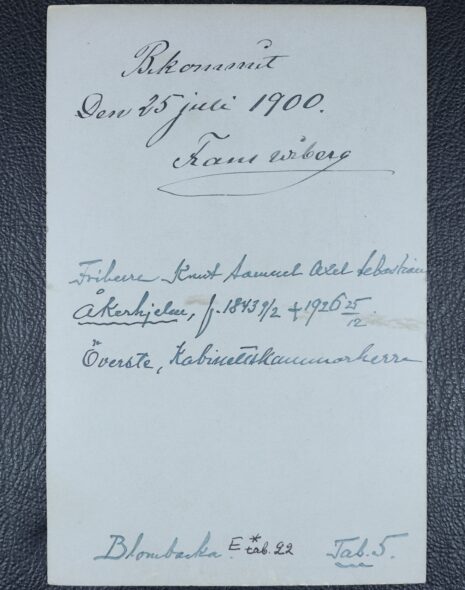 Bekommit
Den 25 juli 1900.
Frans Wiberg
Friherre Knut Samuel Axel Sebastian
Åkerhjelm, f. 1843 9/2 + 1926 25/12.
Överste, Kabinettskammarherre
Blombacka. E* tab. 22 Tab. 5.